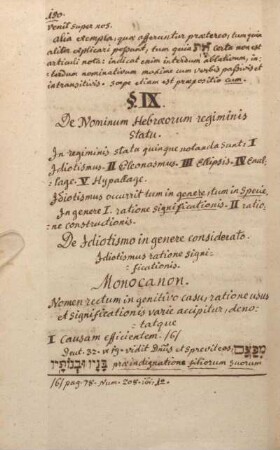 190.
Venit super vos.
Alia exempla, quæ afferuntur præterea, tum quia
aliter explicari possunt, tum quia את certa non est
articuli nota: indicat enim interdum ablativum, in-
terdum nominativum maxime cum verbis passivis et
intransitivis. Sæpe etiam est præpositio cum.
§. IX.
De Nominum Hebræorum regiminis
statu.
In regiminis statu quinque notanda sunt: I
Idiotismus. II Pleonosmus. III Ellipsis. IV Enal-
lage. V Hypallage.
Idiotismus occurrit tum in genere, tum in specie
In genere I. ratione significationis. II ratio-
ne constructionis.
De Idiotismo in genere considerato.
Idiotismus ratione signi-
ficationis.
Monocanon.
Nomen rectum in genitivo casu, ratione usus
et significationis varie accipitur, deno-
tatque
I Causam efficientem. /6/
Deut. 32. v. 19. vidit Dnus et sprevit eos,
בניו ובנותיו præ indignatione filiorum suorum
/6/ pag. 78. Num. 208. 12.